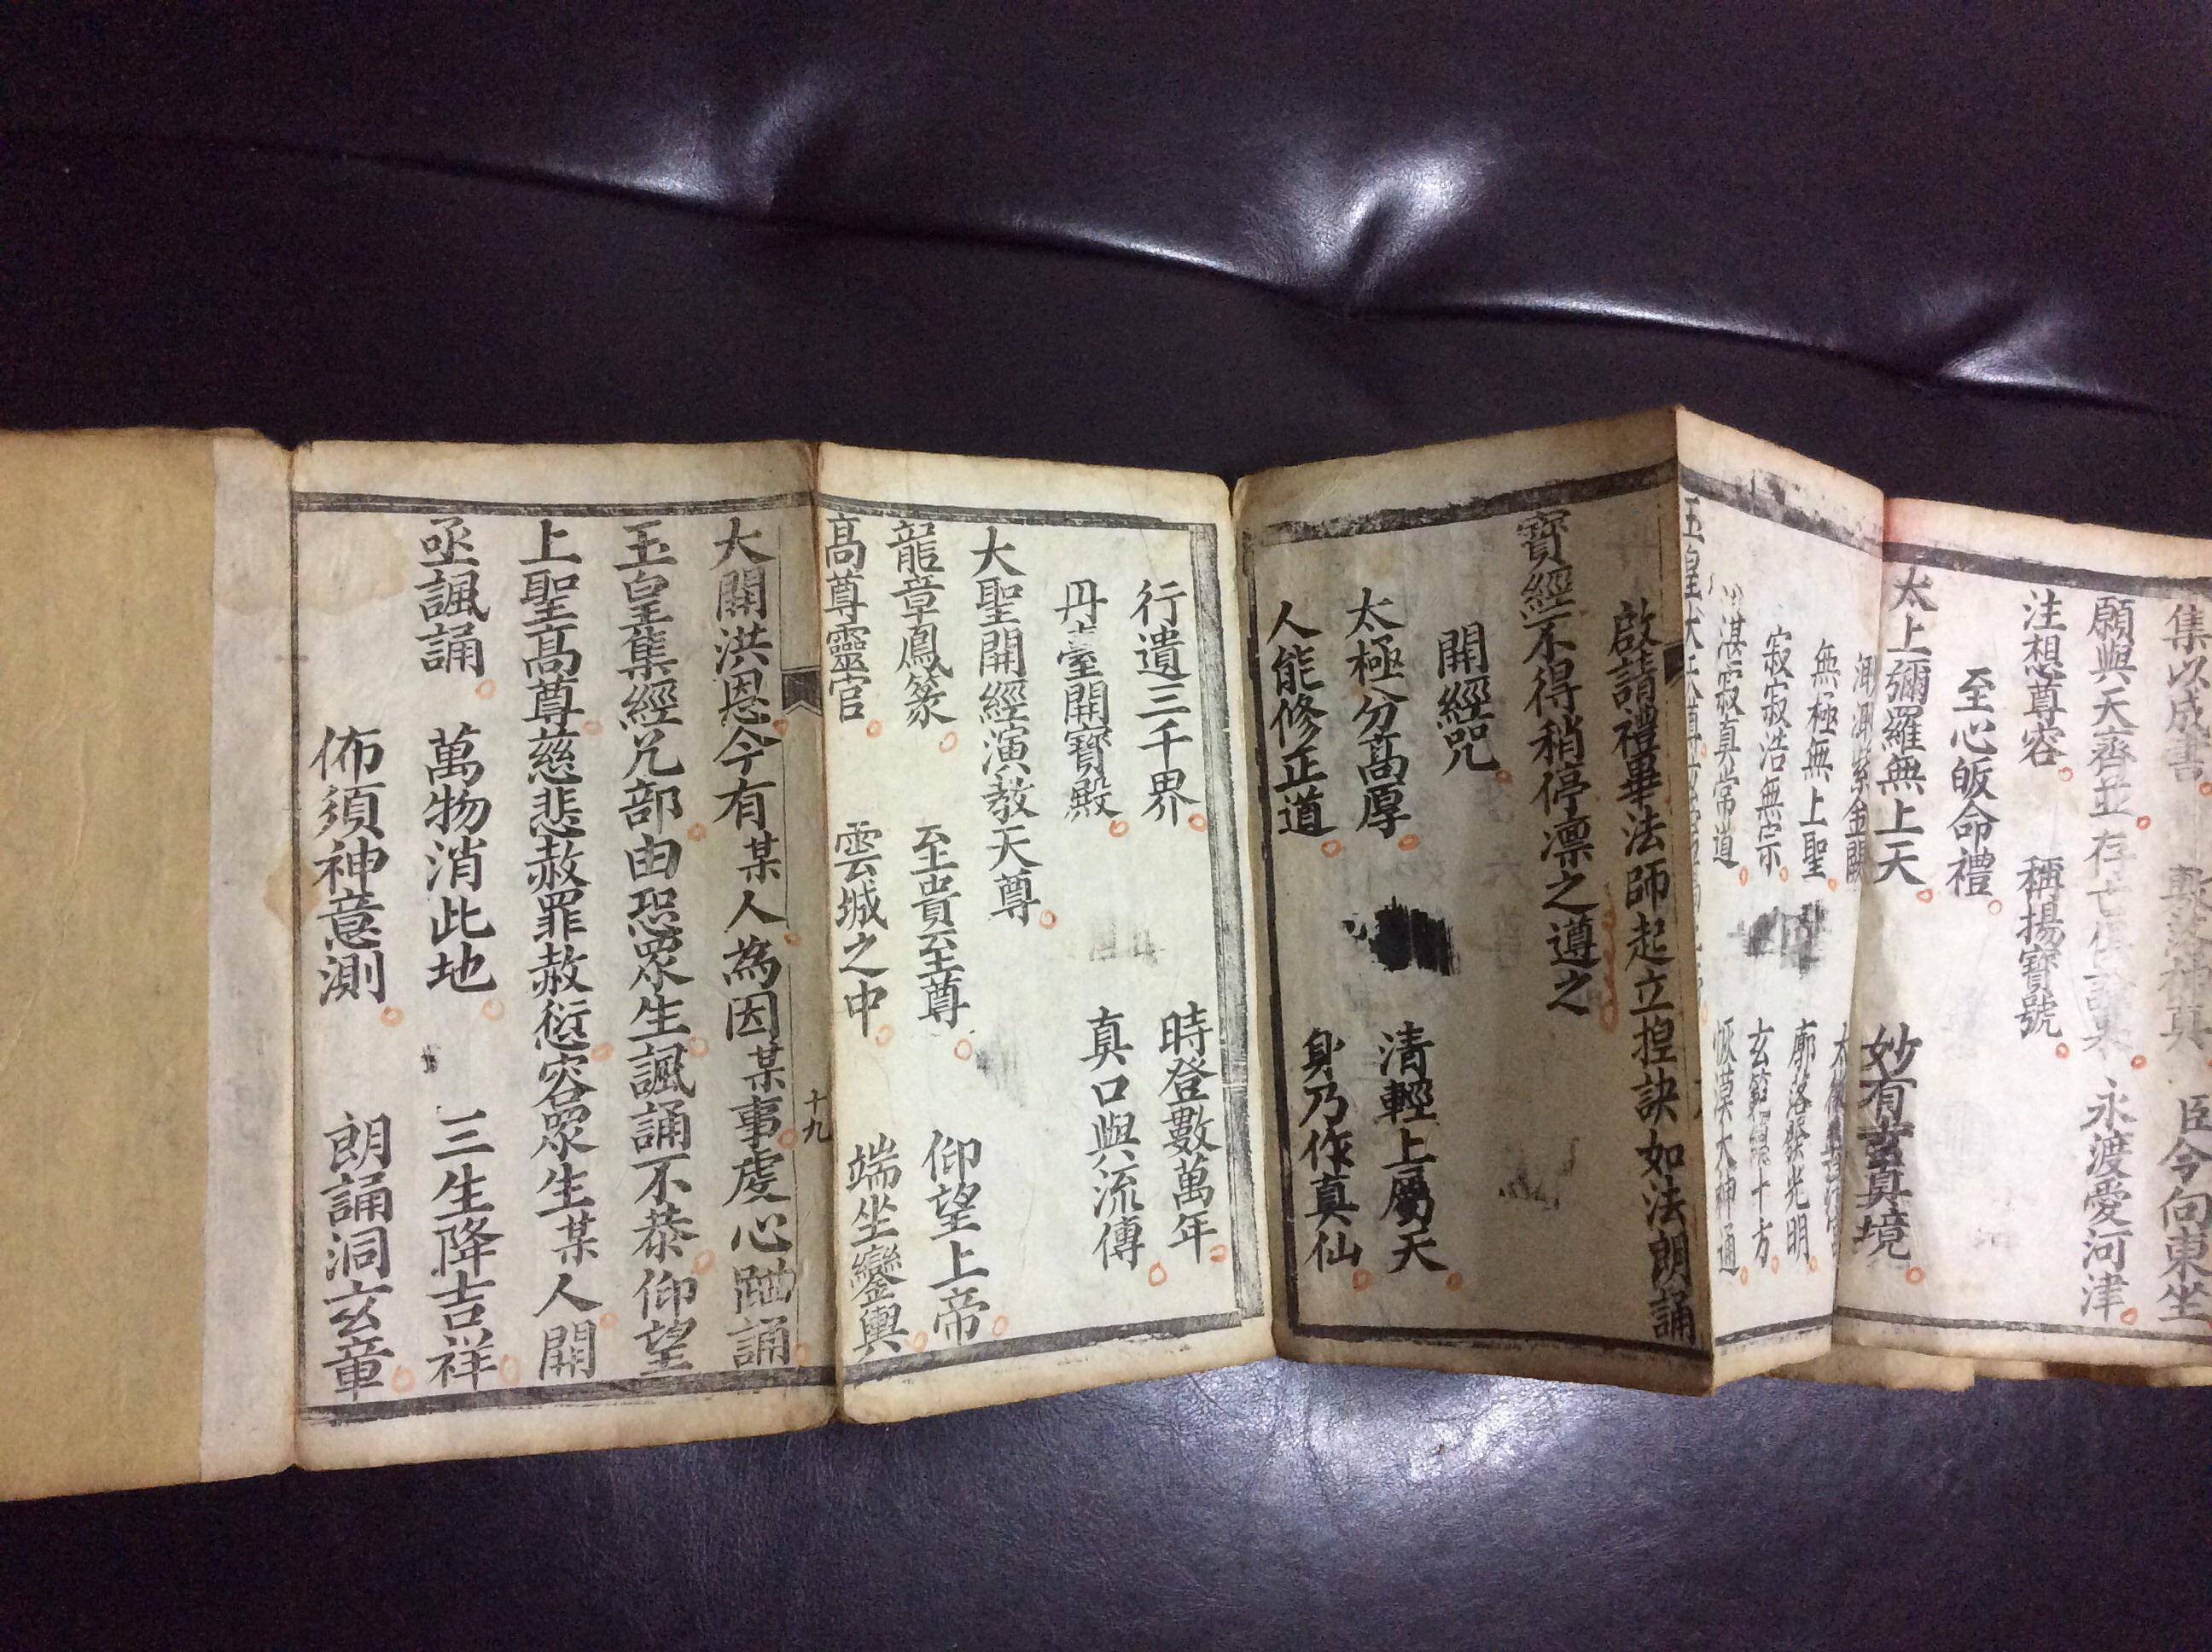 集以成書 臣今向東坐
願與天齊並 存亡 永渡愛河津
注想尊容 稱揚寶號
至心皈命禮
太上彌羅無上天 妙有玄真境
渺渺紫金闕 太微
無極無上聖 廓落發光明
寂寂浩無宗 玄範總十方
湛寂真常道 恢漠大神通
玉皇大天尊
啟請禮畢法師起立揑訣如法朗誦
寶經不得稍停凛之遵之
開經咒
太極分高厚 清輕上屬天
人能修正道 身乃作真仙
行遺三千界 時登數萬年
丹臺開寶殿 真口與流傳
大聖開經演教天尊
龍章鳳篆 至貴至尊 仰望上帝
高尊靈官 雲城之中 端坐鑾輿
十九
大開洪恩今有某人為因某事虔心跏誦
玉皇集經兌部由恐眾生諷誦不恭仰望
上聖高尊慈悲赦罪赦愆容眾生某人開
亟諷誦 萬物消此地 三生降吉祥
佈須神意測 朗誦洞玄章